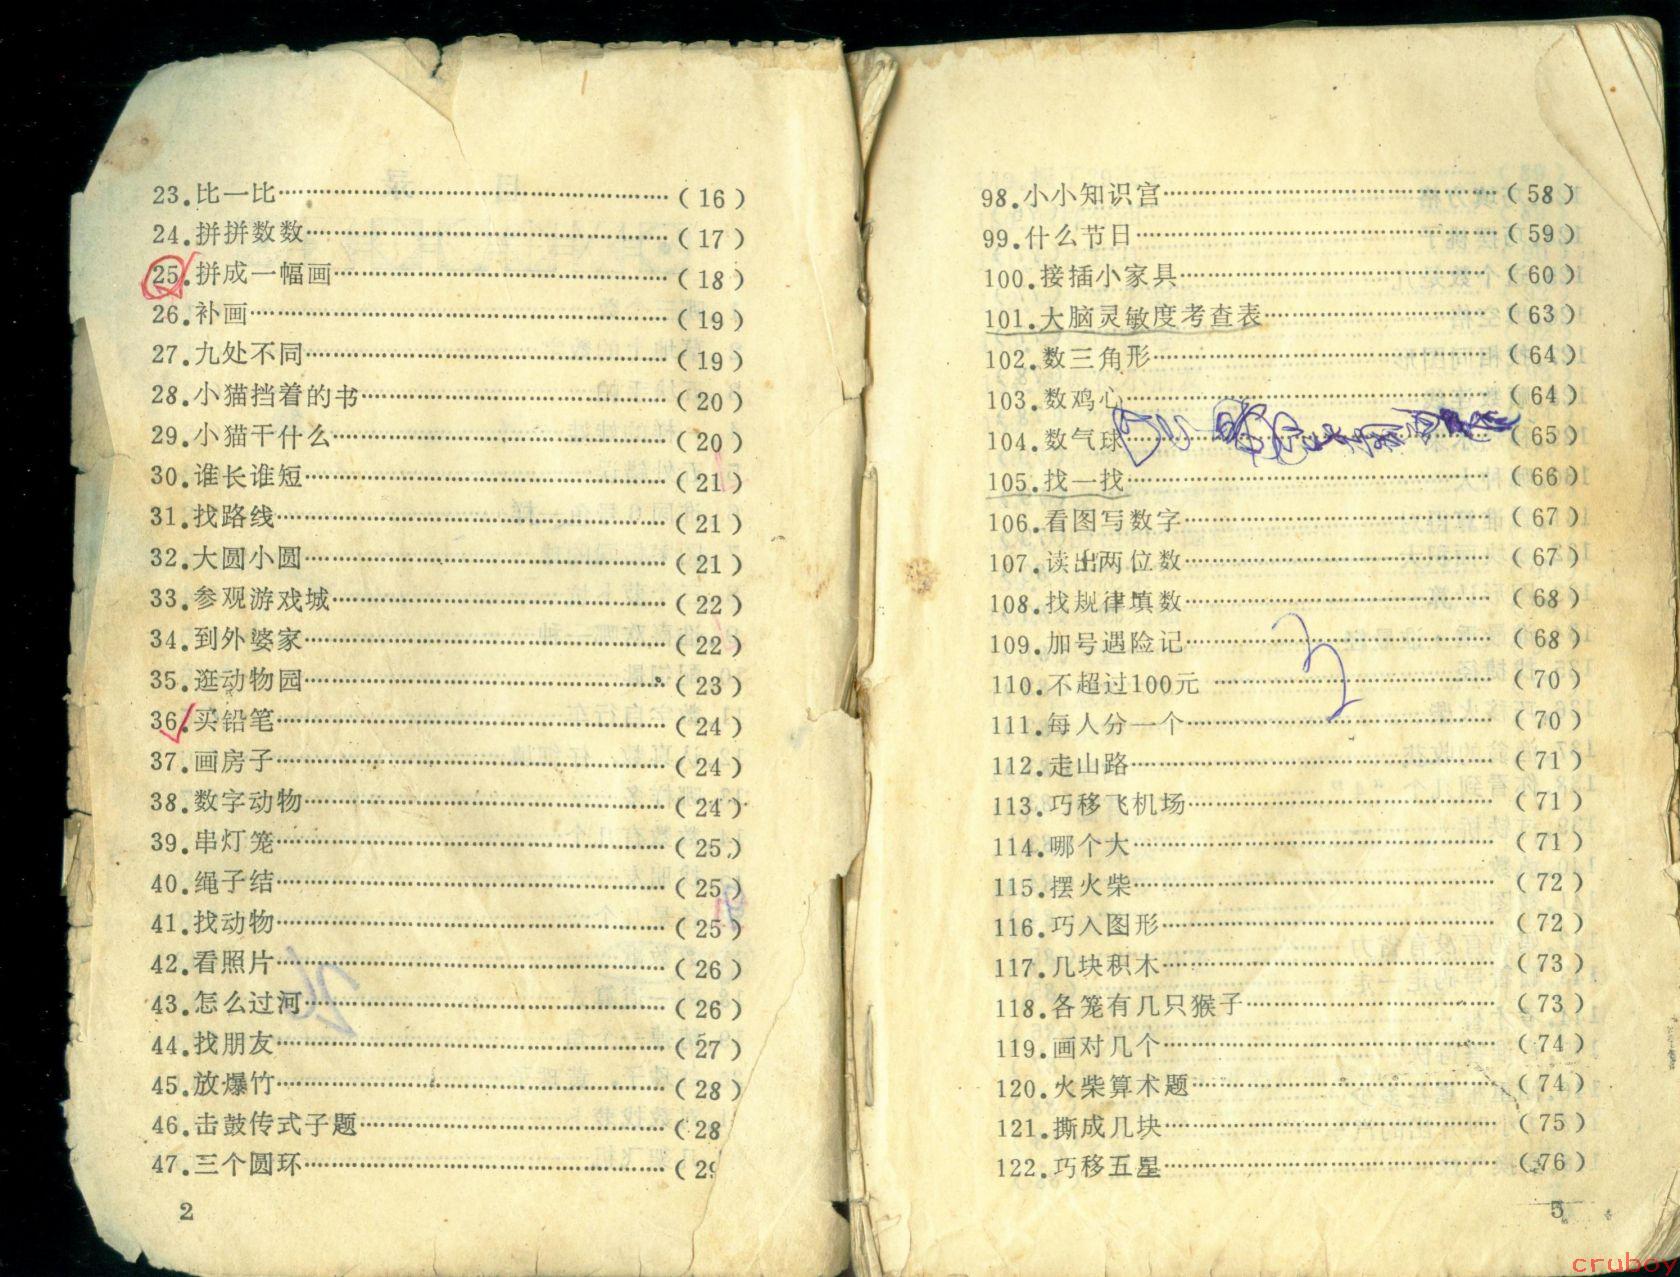 23.比一比……(16)
24.拼拼数数……(17)
25.拼成一幅画……(18)
26.补画……(19)
27.九处不同……(19)
28.小猫挡着的书……(20)
29.小猫干什么……(20)
30.谁长谁短……(21)
31.找路线……(21)
32.大圆小圆……(21)
33.参观游戏城……(22)
34.到外婆家……(22)
35.逛动物园……(23)
36.买铅笔……(24)
37.画房子……(24)
38.数字动物……(24)
39.串灯笼……(25)
40.绳子结……(25)
41.找动物……(25)
42.看照片……(26)
43.怎么过河……(26)
44.找朋友……(27)
45.放爆竹……(28)
46.击鼓传式子题……(28
47.三个圆环……(29
2
98.小小知识宫……(58)
99.什么节日……(59)
100.接插小家具……(60)
101.大脑灵敏度考查表……(63)
102.数三角形……(64)
103.数鸡心……(64)
104.数气球……(65)
105.找一找……(66)
106.看图写数字……(67)
107.读出两位数……(67)
108.找规律填数……(68)
109.加号遇险记……(68)
110.不超过100元……(70)
111.每人分一个……(70)
112.走山路……(71)
113.巧移飞机场……(71)
114.哪个大……(71)
115.摆火柴……(72)
116.巧入图形……(72)
117.几块积木……(73)
118.各笼有几只猴子……(73)
119.画对几个……(74)
120.火柴算术题……(74)
121.撕成几块……(75)
122.巧移五星……(76)
5
cruboy